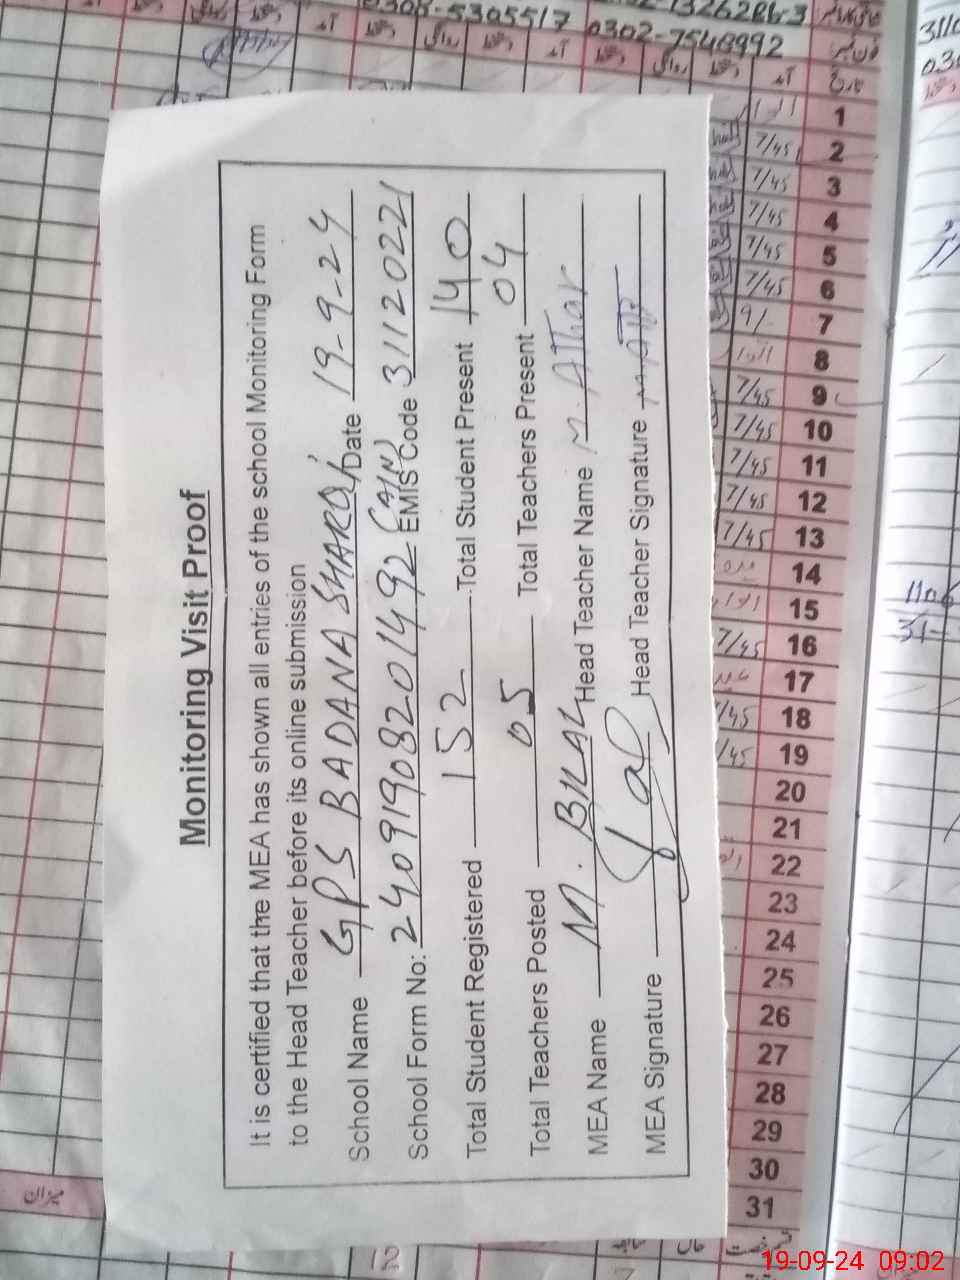 Monitoring Visit Proof
It is certified that the MEA has shown all entries of the school Monitoring Form
to the Head Teacher before its online submission
School Name GPS BADANA SHARQI Date 19-9-24
(AIN)
School Form No: 24091908201492 EMIS Code 31120221
Total Student Registered 152 Total Student Present 140
Total Teachers Posted 05 Total Teachers Present 04
MEA Name M. BILAL Head Teacher Name M ATHar
MEA Signature Head Teacher Signature
0302-7548992
1
7/45 2
7/45 3
7/45 4
7/45 5
7/45 6
9/- 7
8
7/45 9
7/45 10
7/45 11
7/45 12
7/45 13
14
15
7/45 16
17
7/45 18
7/45 19
20
21
22
23
24
25
26
27
28
29
30
31
میزان
19-09-24 09:02